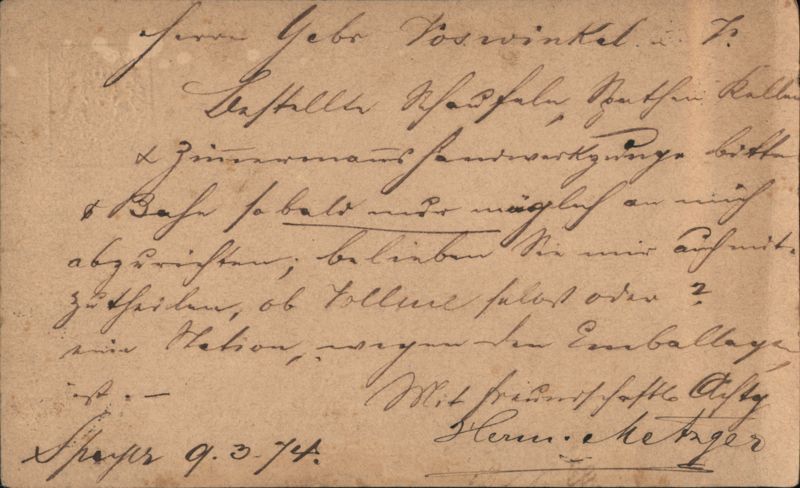 Herrn Gebr Voswinkel
Bestellte Schaufeln, Spathen Kellen
& Zimmermanns Handwerkzeuge bitte
p Bahn so bald nur möglich an mich
abzurichten; belieben Sie mir auch mit-
zutheilen, ob Vollme selbst oder ?
eine Station, wegen den Emballage,
ist. —
Mit freundschaftl. Achtg
Herm. Metzger
9.3.74.